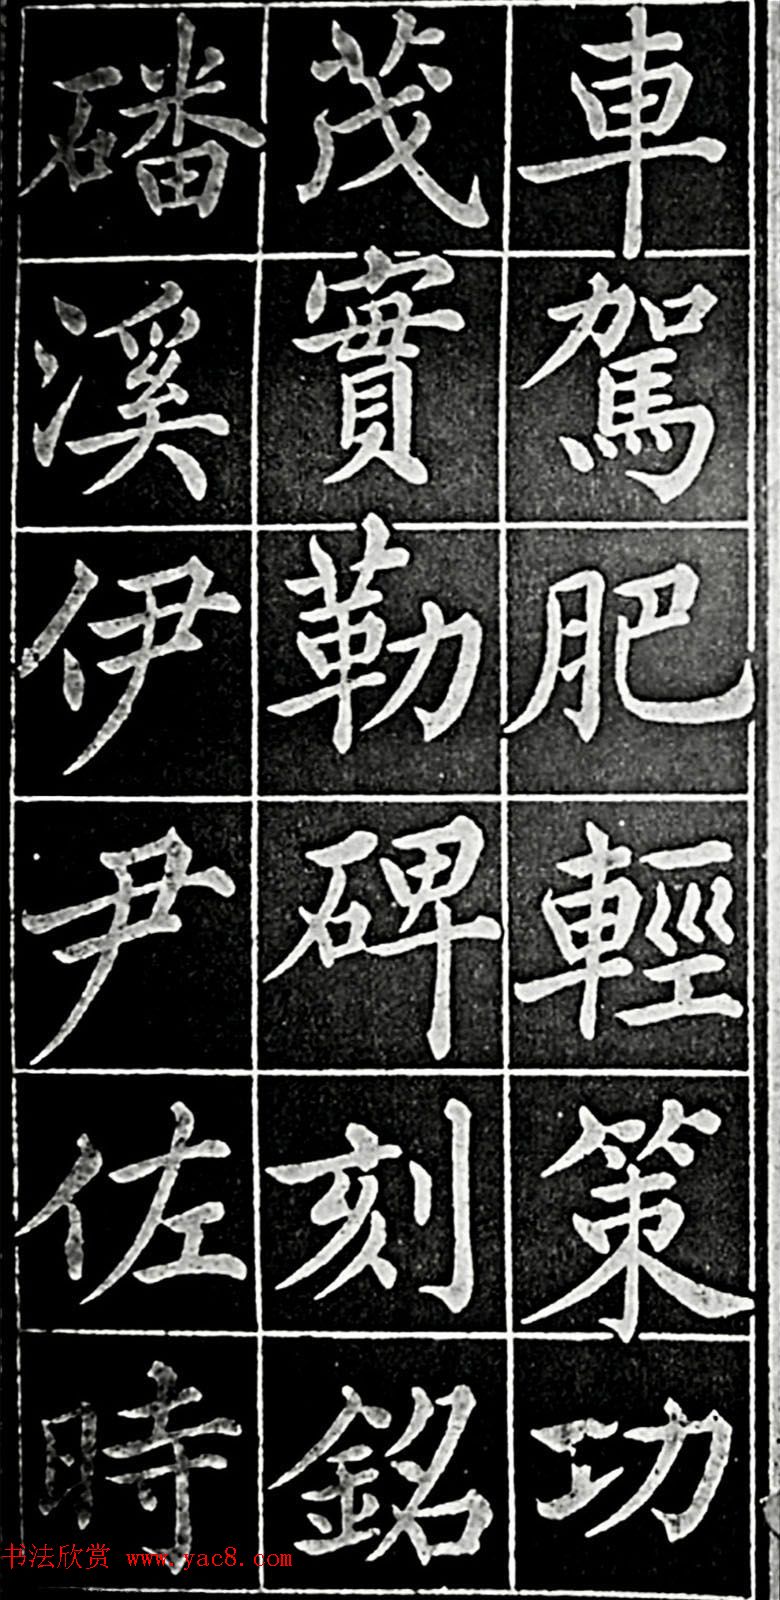 車駕肥輕策功
茂實勒碑刻銘
磻溪伊尹佐時
书法欣赏 www.yac8.com